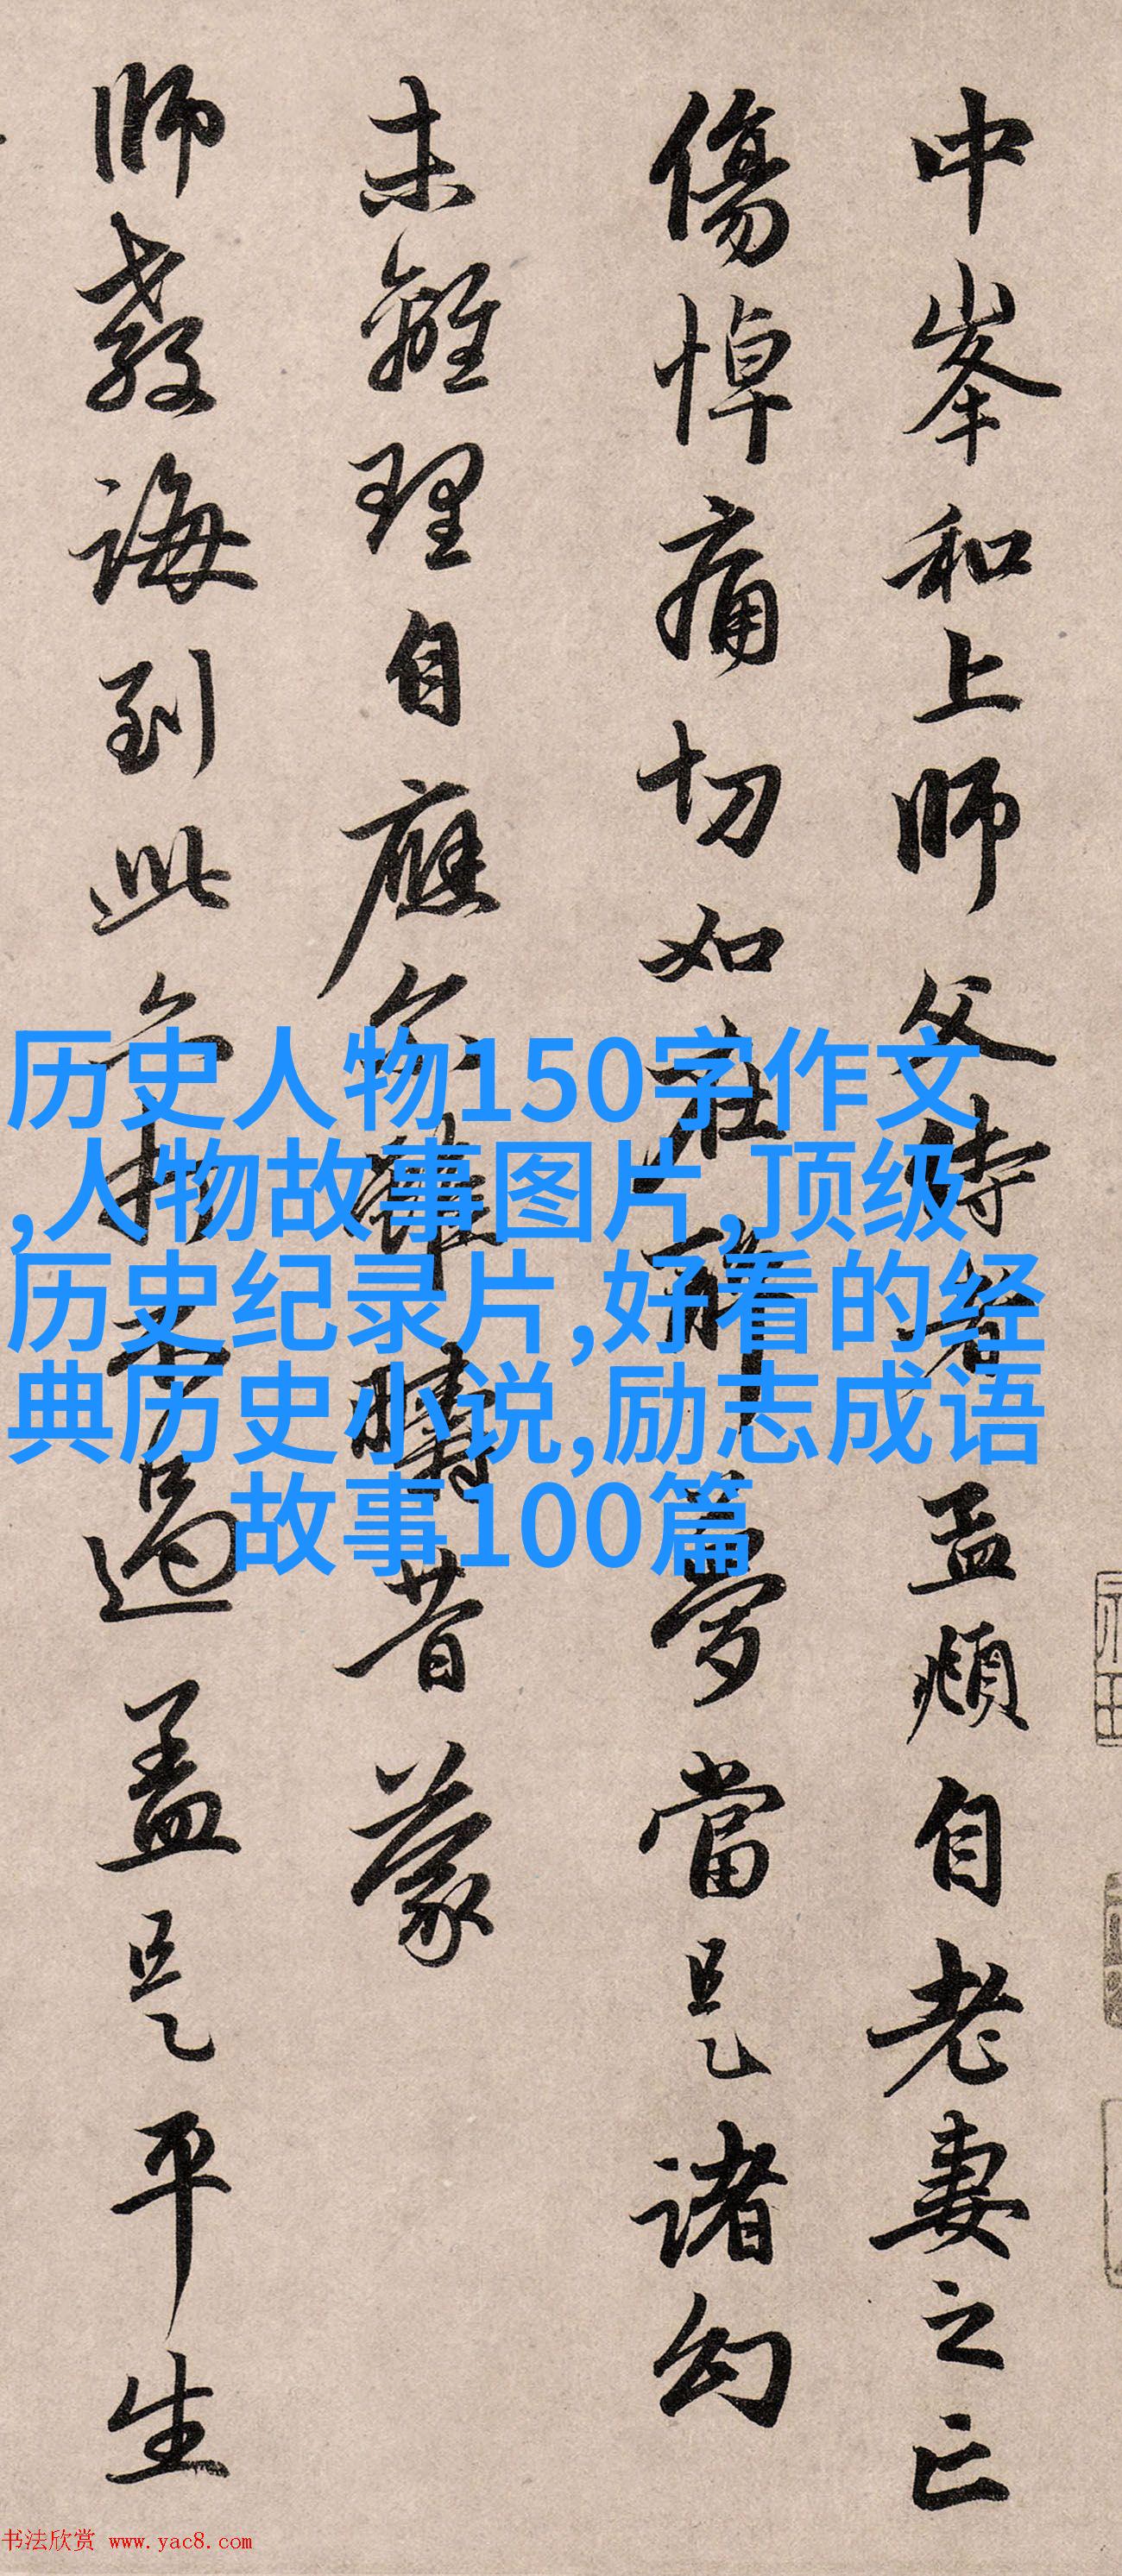 中峯和上師父侍者孟頫自老妻之亡
傷悼痛切如在醉夢當是諸幻
未離理自應尒雖疇昔蒙
師教誨到此亦打不過蓋是平生
历史人物150字作文
,人物故事图片,顶级
历史纪录片,好看的经
典历史小说,励志成语
故事100篇
书法欣赏 www.yac8.com